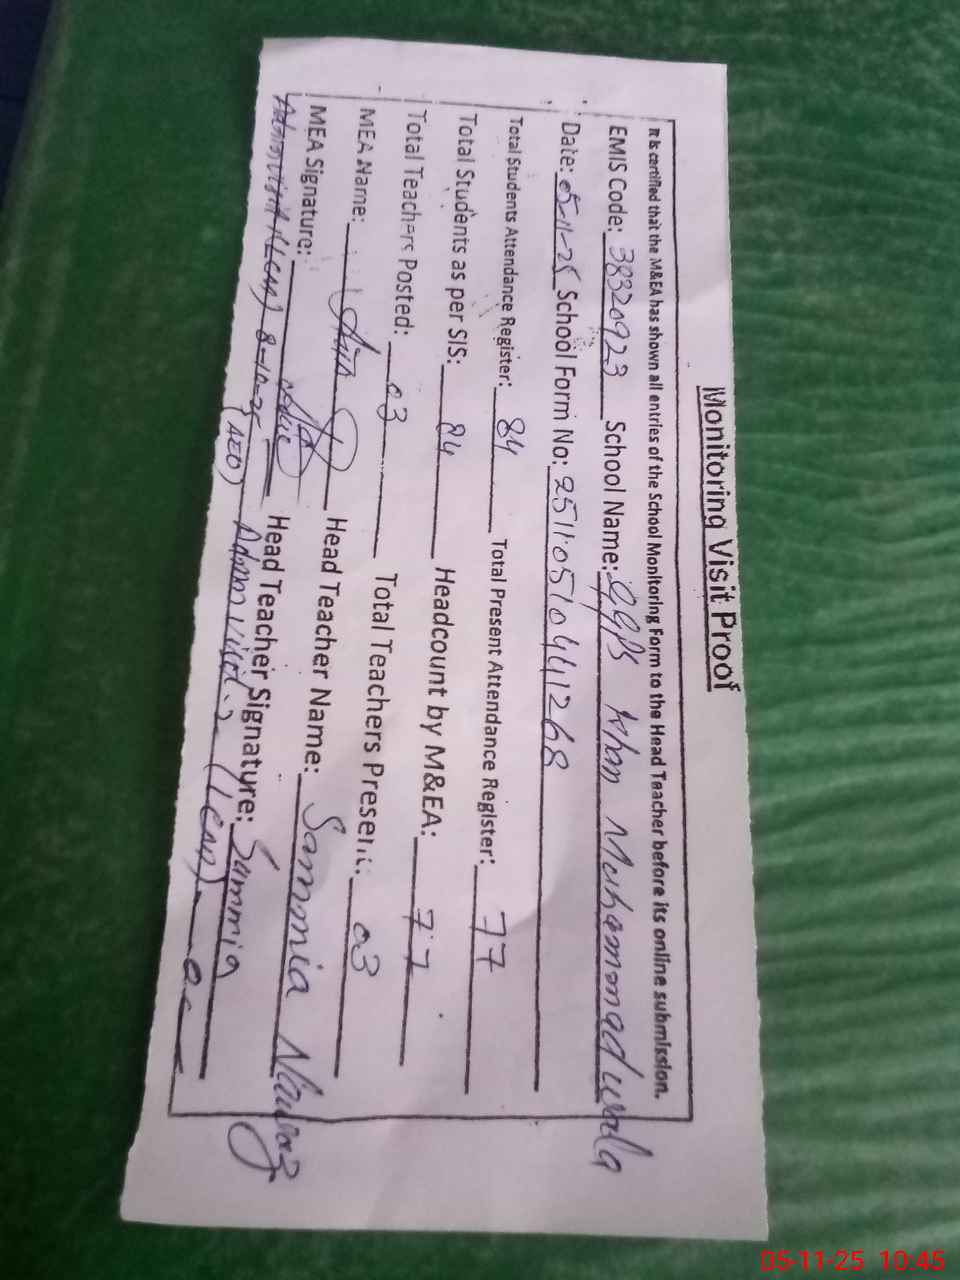 Monitoring Visit Proof
It is certified that the M&EA has shown all entries of the School Monitoring Form to the Head Teacher before its online submission.
EMIS Code: 38320923 School Name: GGPS Khan Muhammad wala
Date: 05-11-25 School Form No: 251105104441268
Total Students Attendance Register: 84 Total Present Attendance Register: 77
Total Students as per SIS: 84 Headcount by M&EA: 77
Total Teachers Posted: 03 Total Teachers Present: 03
MEA Name: Head Teacher Name: Sammia Nawaz
MEA Signature: Head Teacher Signature: Sammia
Admn Visit 8-10-25 (AEO) Admn Visit
05-11-25 10:45